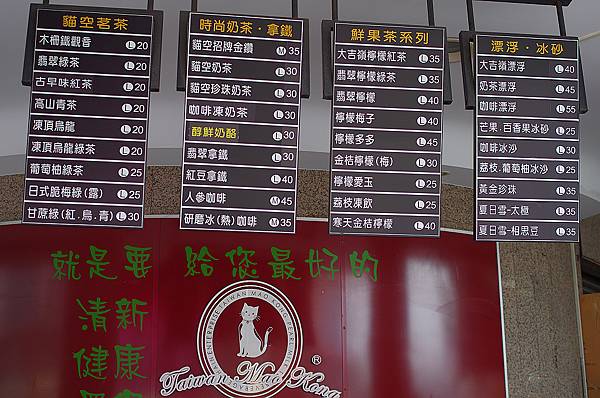 貓空茗茶
木柵鐵觀音 L 20
翡翠綠茶 L 20
古早味紅茶 L 20
高山青茶 L 20
凍頂烏龍 L 20
凍頂烏龍綠茶 L 20
葡萄柚綠茶 L 25
日式脆梅綠(露) L 25
甘蔗綠(紅.烏.青) L 30
時尚奶茶·拿鐵
貓空招牌金鑽 M 35
貓空奶茶 L 30
貓空珍珠奶茶 L 30
咖啡凍奶茶 L 30
醇鮮奶酪 L 30
翡翠拿鐵 L 30
紅豆拿鐵 L 40
人參咖啡 M 45
研磨冰(熱)咖啡 M 35
鮮果茶系列
大吉嶺檸檬紅茶 L 35
翡翠檸檬綠茶 L 35
翡翠檸檬 L 40
檸檬梅子 L 40
檸檬多多 L 45
金桔檸檬(梅) L 30
檸檬愛玉 L 35
荔枝凍飲 L 35
寒天金桔檸檬 L 40
漂浮·冰砂
大吉嶺漂浮 L 40
奶茶漂浮 L 45
咖啡漂浮 L 55
芒果.百香果冰砂 L 45
咖啡冰沙 L 30
荔枝.葡萄柚冰沙 L 35
黃金珍珠 L 35
夏日雪-太極 L 35
夏日雪-相思豆 L 35
就是要 給您最好的
清新
健康
TAIWAN MAO KONG
Taiwan Mao Kong ®